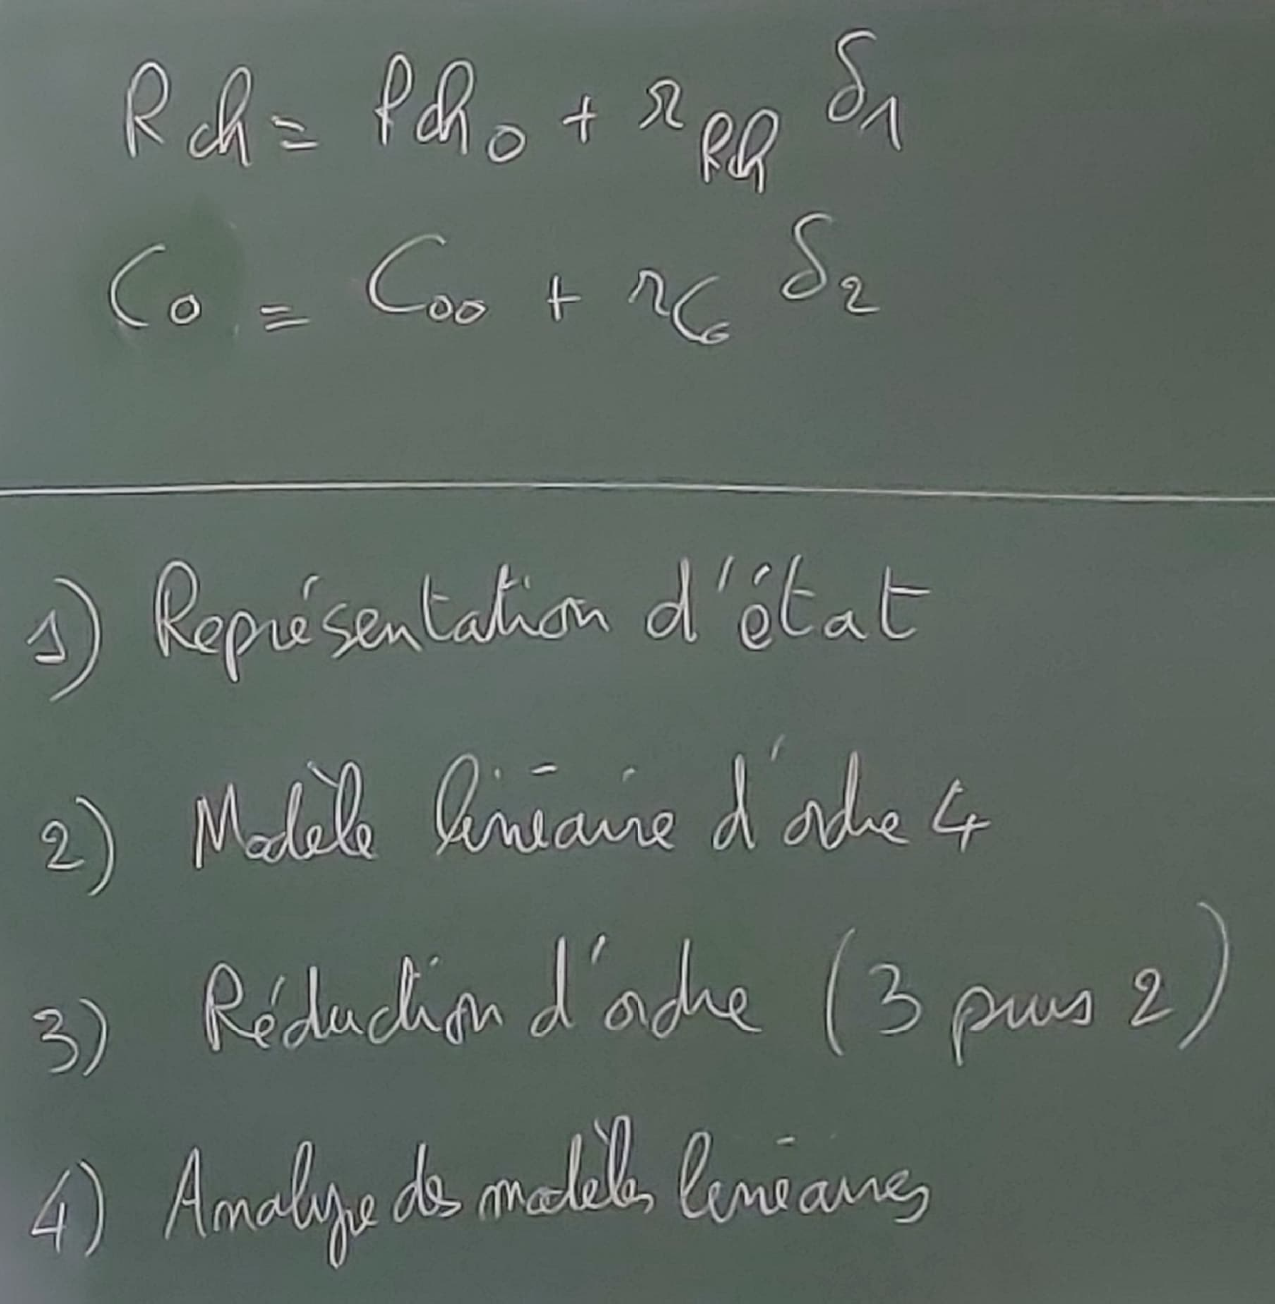 Rch = Rch₀ + r_Rch δ₁
C₀ = C₀₀ + r_C₀ δ₂
1) Représentation d'état
2) Modèle linéaire d'ordre 4
3) Réduction d'ordre (3 puis 2)
4) Analyse des modèles linéaires